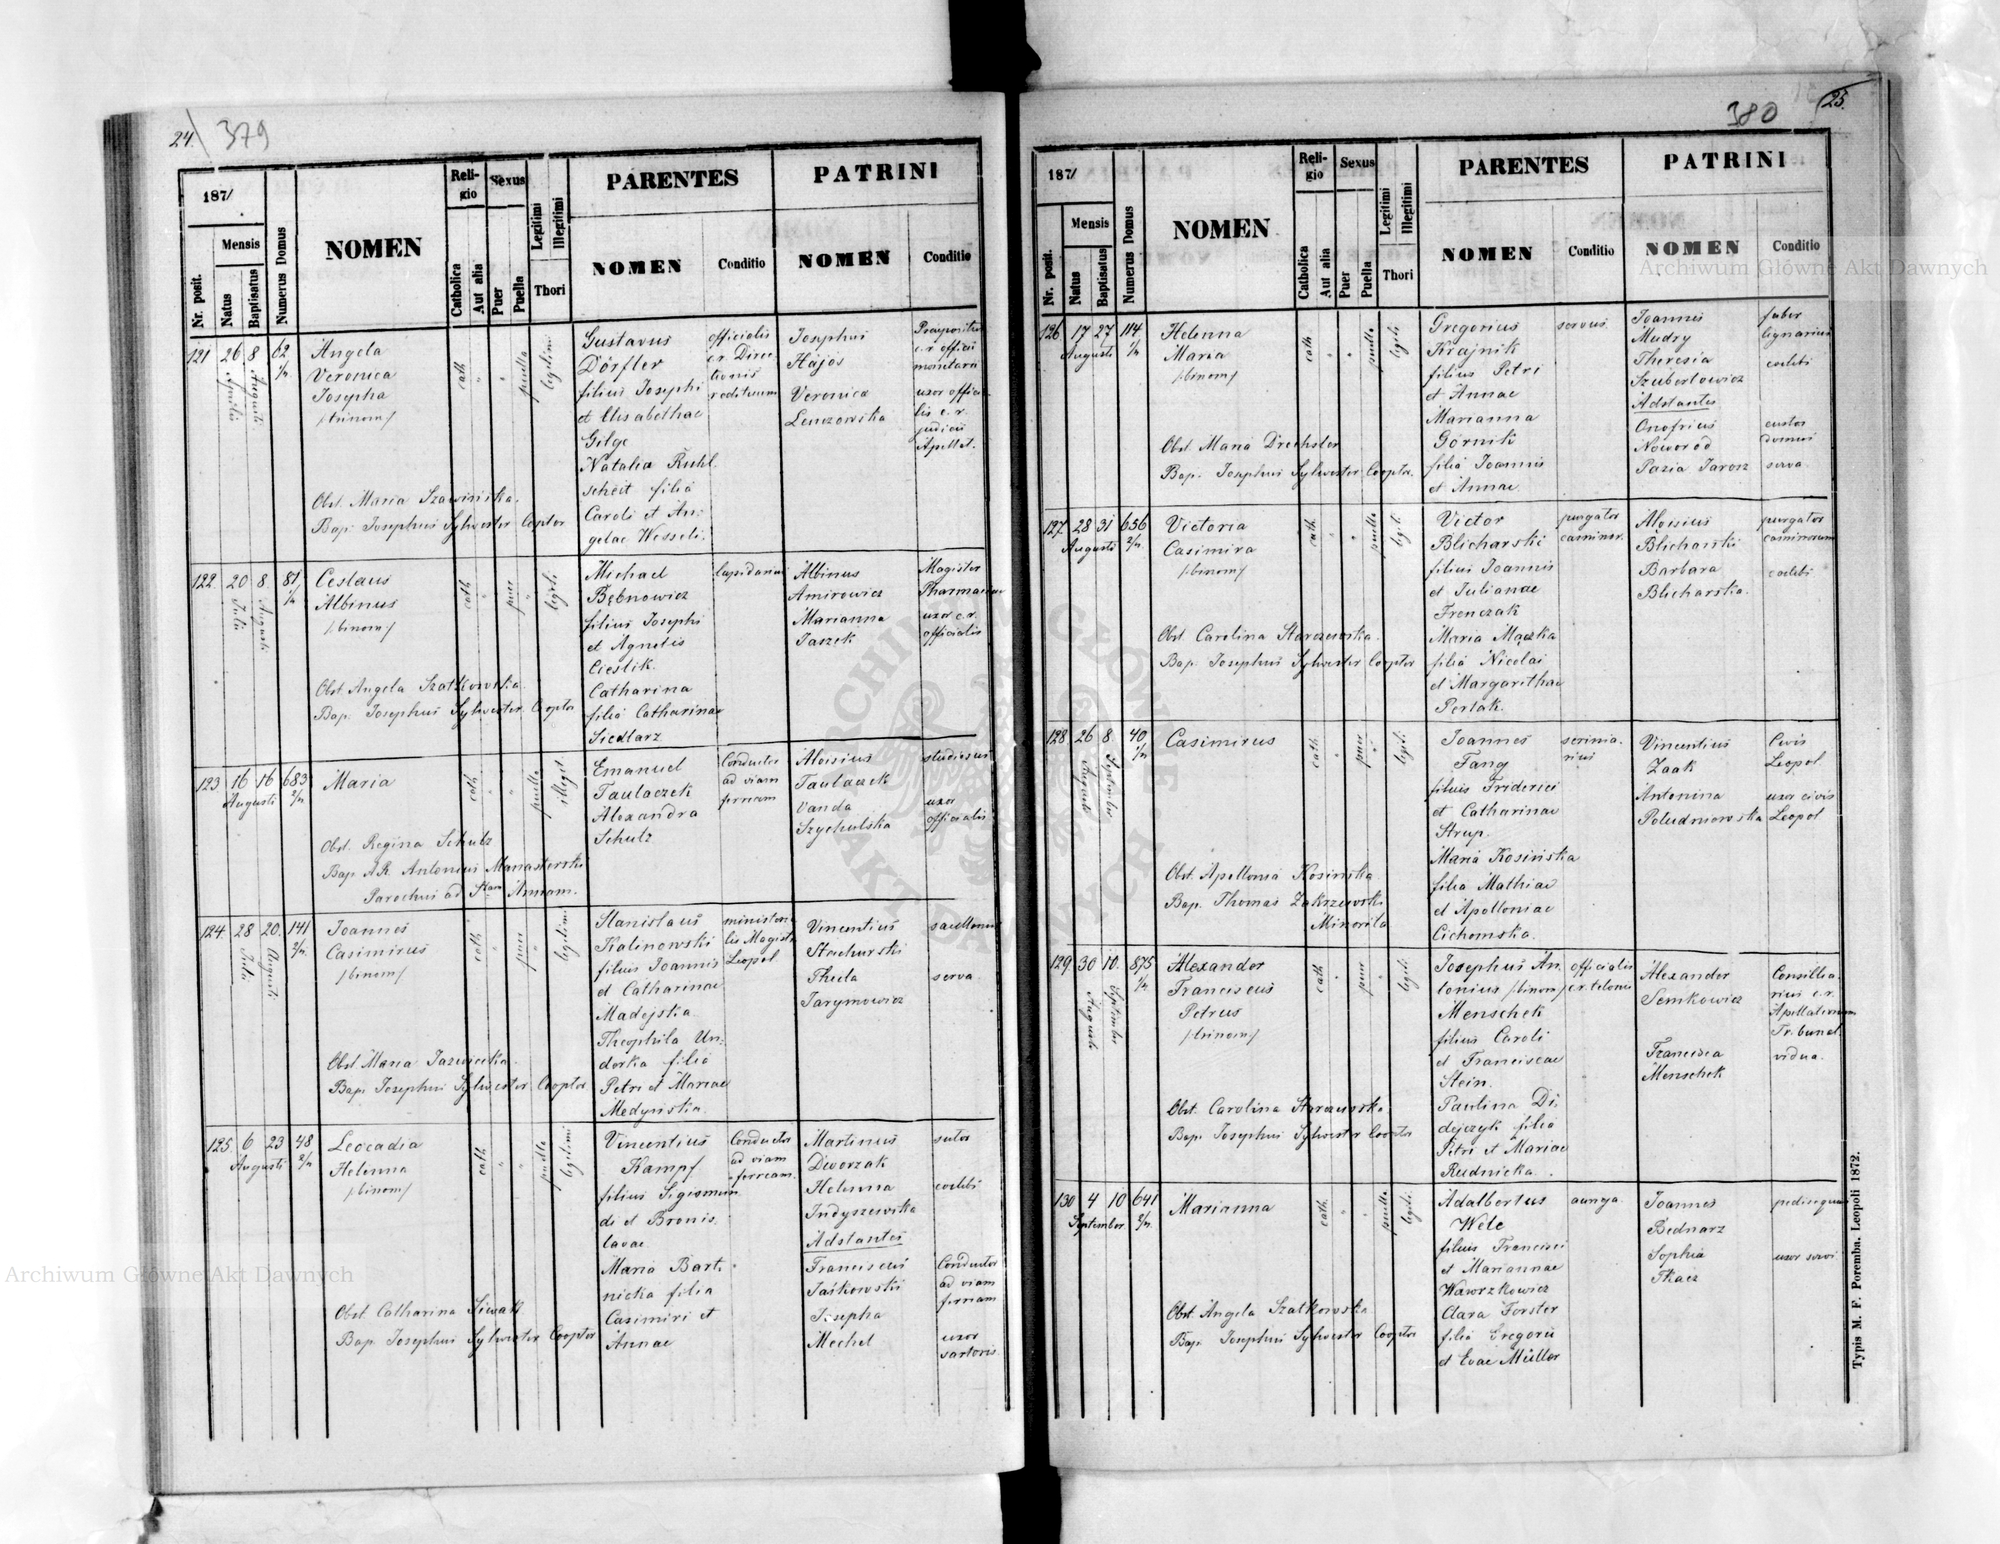 24. 379
187/
Nr. posit.
Mensis
Natus
Baptisatus
Numerus Domus
NOMEN
Religio
Catholica
Aut alia
Sexus
Puer
Puella
Legitimi
Illegitimi
Thori
PARENTES
NOMEN
Conditio
PATRINI
NOMEN
Conditio
121 26 8 62
Aprilis
Augusti
Angela
Veronica
Josepha
/:trinom:/
cath
puella
legitimi
Gustavus
Dörfler
filius Josephi
et Elisabethae
Gilge
Natalia Ruhl.
scheit filia
Caroli et An:
gelae Wesseli.
officialis
c.r. Direc
tionis
redituum
Josephus
Hájos
Veronica
Lenczowska
Praepositus
c.r. officii
montani
uxor officia
lis c. r.
judicii
Apellat.
Obst. Maria Szawińska.
Bap. Josephus Sylwester Coptor
122 20 8 81
Julii
Augusti
Ceslaus
Albinus
/:binom:/
cath
puer
legiti
Michael
Bębnowicz
filius Josephi
et Agnetis
Cieslik.
Catharina
filia Catharinae
Siedlarz
lapidarius
Albinus
Amirowicz
Marianna
Jaszek
Magister
Pharmaciae
uxor c.r.
officialis
Obst. Angela Szatkowska
Bap. Josephus Sylwester Cooptor
123 16 16 683
Augusti 2/4
Maria
cath
puella
illegit.
Emanuel
Taulaczek
Alexandra
Schulz
Conductor
ad viam
ferream
Aloisius
Taulaczek
Vanda
Szychulska
studiosus
uxor
officialis
Obst. Regina Schulz
Bap. A.R. Antonius Manasterski
Parochus ad Stam Annam.
124 28 20 141
Julii
Augusti
2/4
Joannes
Casimirus
/:binom:/
cath
puer
legitimi
Stanislaus
Kalinowski
filius Joannis
et Catharinae
Madejska
Theophila Un:
dorka filia
Petri et Mariae
Medyńska.
ministeria
lis Magistr
Leopol
Vincentius
Stachurski
Thecla
Jarymowicz
serva
Obst Maria Jazwiecka
Bap. Josephus Sylwester Cooptor
125 6 23 48
Augusti 2/4
Leocadia
Helenna
/:binom:/
cath
puella
legitimi
Vincentius
Kampf
filius Sigismun
di et Bronis.
lavae
Maria Bart.
nicka filia
Casimiri et
Annae
Conductor
ad viam
ferream.
Martinus
Dworzak
Helenna
Indyszewska
Adstantes
Franciscus
Jaśkowski
Josepha
Mechel
sutor
caelebs
Conductor
ad viam
ferream
uxor
sartoris
Obst. Catharina Siwak
Bap. Josephus Sylwester Cooptor
380 25.
187/
Nr. posit.
Mensis
Natus
Baptisatus
Numerus Domus
NOMEN
Religio
Catholica
Aut alia
Sexus
Puer
Puella
Legitimi
Illegitimi
Thori
PARENTES
NOMEN
Conditio
PATRINI
NOMEN
Conditio
126 17 27 114
Augusti
Helenna
Maria
/:binom:/
cath
puella
legiti
Gregorius
Krajnik
filius Petri
et Annae
Marianna
Górnik
filia Joannis
et Annae
servus.
Joannes
Mudry
Theresia
Szubertowicz
Adstantes
Onofrius
Noworod
Pazia Jarosz
faber
lignarius
caelebs
custos
domus
serva.
Obst. Maria Drechsler
Bap. Josephus Sylwester Cooptor.
127 28 31 656
Augusti 2/4
Victoria
Casimira
/:binom:/
cath.
puella
legiti.
Victor
Blicharski
filius Joannis
et Julianae
Frenczak
Maria Mączka
filia Nicolai
et Margarithae
Perlak.
purgator
caminor.
Aloisius
Blicharski
Barbara
Blicharska.
purgator
caminorum
caelebs
Obst. Carolina Starczewska.
Bap. Josephus Sylwester Cooptor
128 26 8 40
Augusti
Septembr.
Casimirus
cath.
puer
legiti.
Joannes
Tang
filius Friderici
et Catharinae
Strup.
Maria Kosińska
filia Mathiae
et Apolloniae
Cichomska.
scrinia.
rius
Vincentius
Zaak
Antonina
Południowska
Civis
Leopol
uxor civis
Leopol
Obst. Apollonia Kosińska
Bap. Thomas Zakrzewski
Minorita
129. 30 10. 875
Augusti
Septembr
Alexander
Franciscus
Petrus
/:trinom:/
cath
puer
legiti.
Josephus An.
tonius /:binom:/
Menschek
filius Caroli
et Franciscae
Stein.
Paulina Di.
dejczyk filia
Petri et Mariae
Rudnicka.
officialis
c.r. telonii
Alexander
Semkowicz
Francisca
Menschek
Consilia.
rius c.r.
Apellationum
Tribunal.
vidua.
Obst. Carolina Starczewska.
Bap. Josephus Sylwester Cooptor
130 4 10 641
September 2/4
Marianna
cath.
puella
legiti.
Adalbertus
Wele
filius Francisci
et Mariannae
Wawrzkowicz
Clara Forster
filia Gregorii
et Evae Müller
auriga.
Joannes
Bednarz
Sophia
Tkacz
pedisequus
uxor servi
Obst. Angela Szatkowska
Bap. Josephus Sylwester Cooptor
Typis M. F. Poremba. Leopoli 1872.
Archiwum Główne Akt Dawnych
Archiwum Główne Akt Dawnych
ARCHIWUM GŁÓWNE AKT DAWNYCH